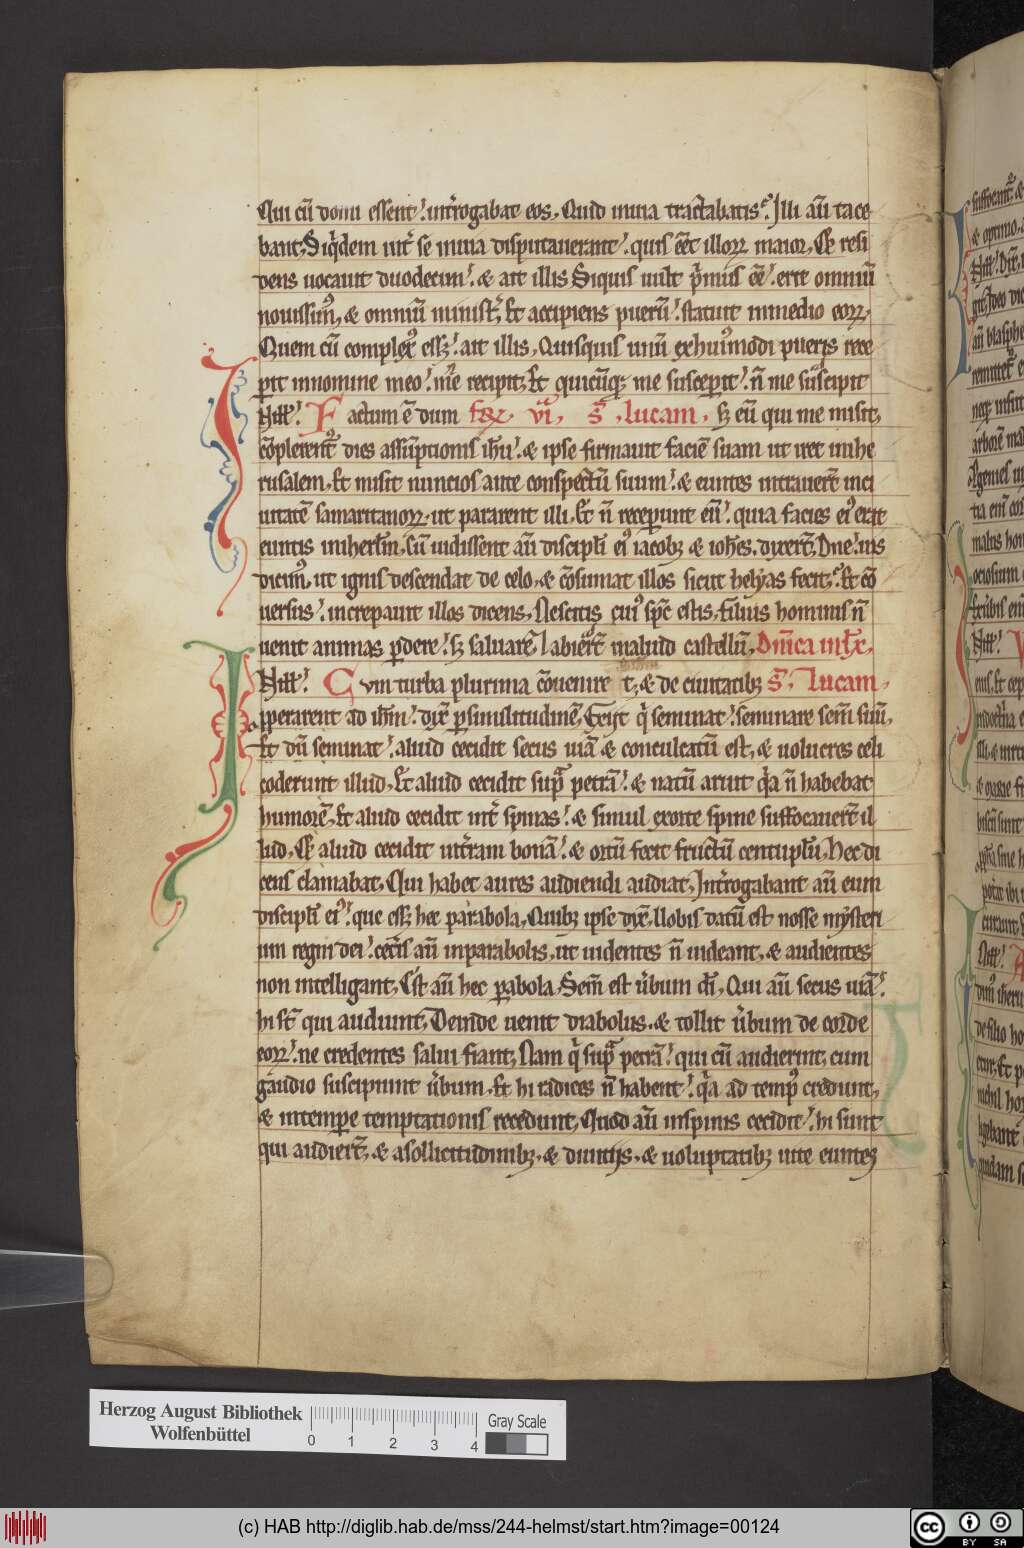 Qui cū domi essent. int̄rogabat eos. Quid in uia tractabatis. Illi aū tace
bant. Siq̇dem int̄ se in uia disputauerant. quis eēt illoꝝ maior. Et resi
dens uocauit duodecim. & ait illis Siquis uult p̄mus eē. erit omniū
nouissimꝰ. & omniū minist̄. Et accipiens puerū. statuit in medio eoꝝ.
Quem cū complexꝰ esꝫ. ait illis. Quisquis unū ex huiꝰmodi pueris rece
perit in nomine meo. me recipit. Et quicūqꝫ me susceperit. n̄ me suscipit
Factum ē dum fer̄. vi. s̄. lucam. sꝫ eū qui me misit.
cōplerent̄ dies assūptionis ih̄u. & ipse firmauit faciē suam ut iret in ihe
rusalem. Et misit nuncios ante conspectū suum. & euntes intrauer̄t in ci
uitatē samaritanoꝝ. ut pararent illi. Et n̄ receperunt eū. quia facies eiꝰ erat
euntis in iherl̄m. Cū uidissent aū discipl̄i eiꝰ iacobꝫ & ioh̄es. dixer̄t. Dn̄e. uis
dicimꝰ ut ignis descendat de celo. & cōsumat illos sicut helyas fecit. Et cō
uersus. increpauit illos dicens. Nescitis cuiꝰ sp̄c estis. filius hominis n̄
uenit animas ꝑdere. sꝫ saluare. Et abier̄t in aliud castellū. Dn̄ica in lx̄.
Cvm turba plurima cōuenire t. & de ciuitatibꝫ S̄. Lucam.
pperarent ad ih̄m. dix̄ ꝑ similitudinē. Exijt q̇ seminat. seminare sem̄ suū.
Et dū seminat. aliud cecidit secus uiā & conculcatū est. & uolucres celi
comederunt illud. Et aliud cecidit supͣ petrā. & natū aruit q̇a n̄ habebat
humorē. Et aliud cecidit int̄ spinas. & simul exorte spine suffocauer̄t il
lud. Et aliud cecidit in t̄ram bonā. & ortū fecit fructū centuplū. Hec di
cens clamabat. Qui habet aures audiendi audiat. Int̄rogabant aū eum
discipl̄i eiꝰ. que esꝫ hec parabola. Quibꝫ ipse dix̄. Uobis datū est nosse mysteri
um regni dei. cet̄is aū in parabolis. ut uidentes n̄ uideant. & audientes
non intelligant. Est aū hec ꝑabola. Sem̄ est ūbum dī. Qui aū secus uiā.
hi st̄ qui audiunt. Deinde uenit diabolus. & tollit ūbum de corde
eoꝝ. ne credentes salui fiant. Nam q̇ supͣ petrā. qui cū audierint. cum
gaudio suscipiunt ūbum. Et hi radices n̄ habent. q̇a ad tempꝰ credunt.
& in tempore temptationis recedunt. Quod aū in spinis cecidit. hi sunt
qui audier̄t. & a sollicitudinibꝫ. & diuitijs. & uoluptatibꝫ uite euntes
Herzog August Bibliothek
Wolfenbüttel
0 1 2 3 4
Gray Scale
(c) HAB http://diglib.hab.de/mss/244-helmst/start.htm?image=00124
cc BY SA